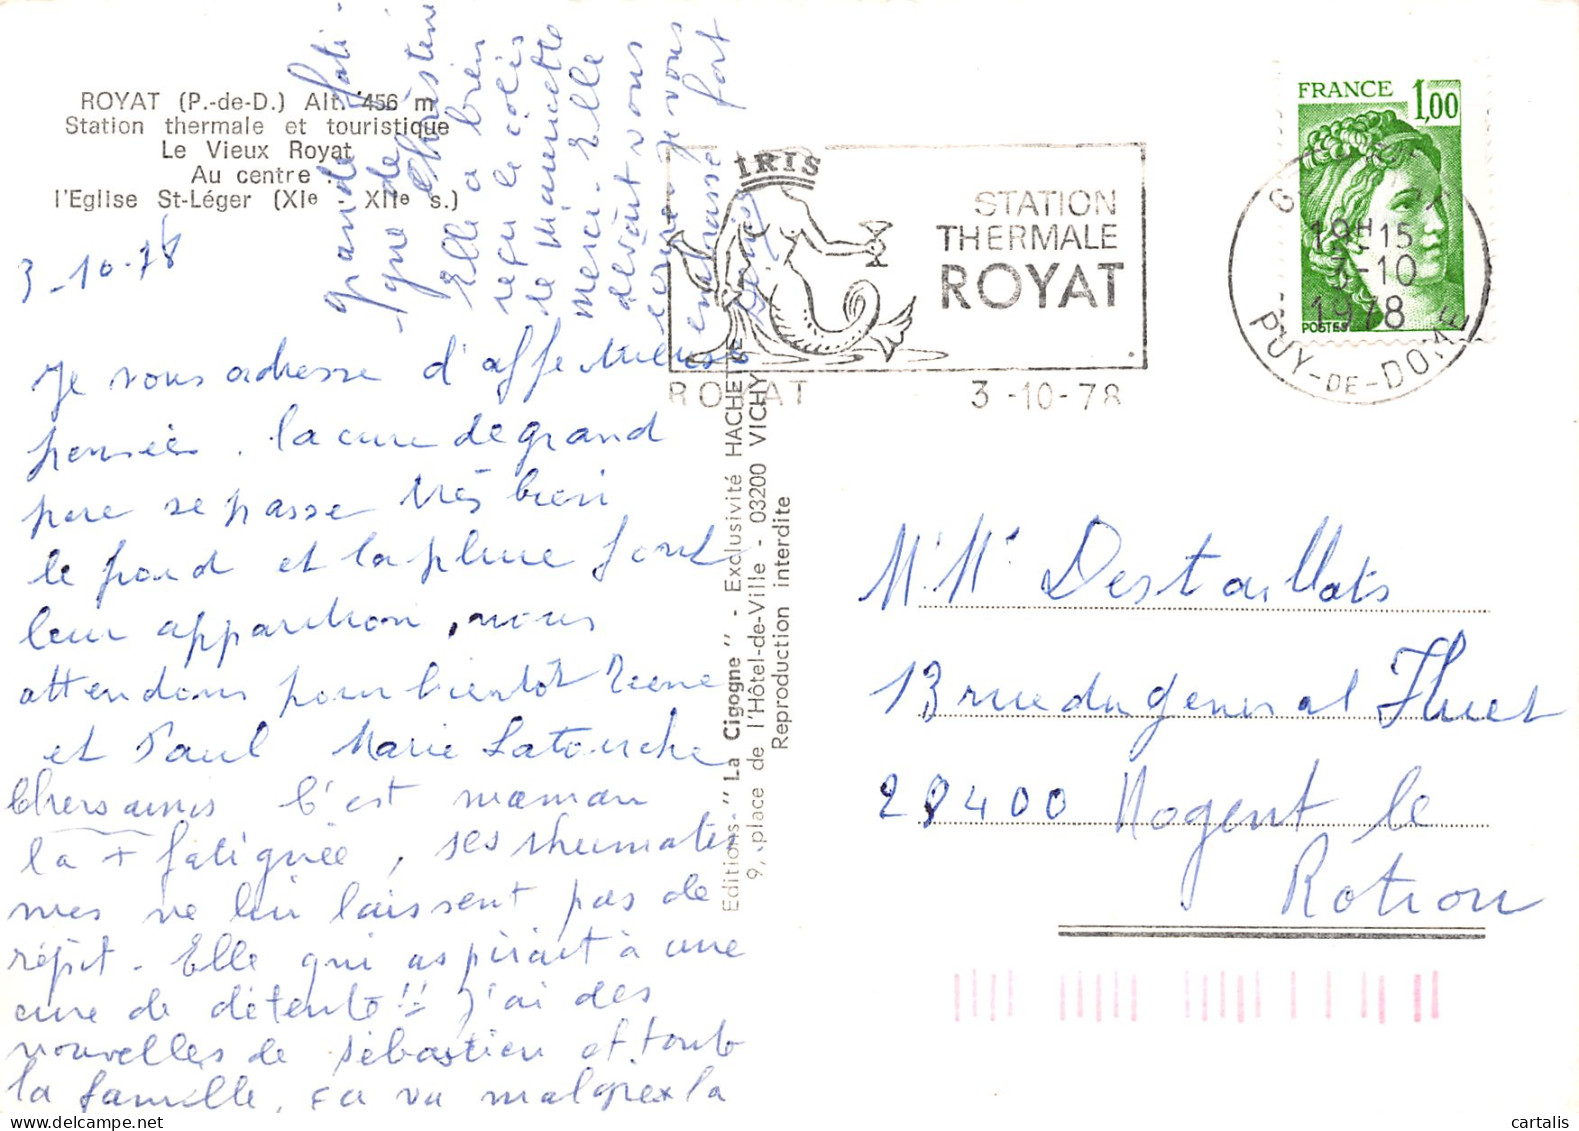 ROYAT (P.-de-D.) Alt. 456 m
Station thermale et touristique
Le Vieux Royat
Au centre :
l'Eglise St-Léger (XIe - XIIe s.)
3-10-78
Je vous adresse d'affectueuses
pensées. la cure de grand
pere se passe très bien
le froid et la pluie font
leur apparition, nous
attendons pour bientôt Irene
et Paul Marie Latouche
Chers amis C'est maman
la + fatiguée, ses rhumatis
mes ne lui laissent pas de
répit - Elle qui aspirait à une
cure de détente !! J'ai des
nouvelles de Sébastien et toute
la famille. ça va malgré la
grande fati-
-gue de Christine
Elle a bien
reçu le colis
de Mamette
merci. Elle
devait vous
ecrire je vous
embrasse fort
Editions "La Cigogne" - Exclusivité HACHETTE
9, place de l'Hôtel-de-Ville - 03200 VICHY
Reproduction interdite
IRIS
STATION
THERMALE
ROYAT
ROYAT 3-10-78
FRANCE 1,00
POSTES
19H15
3-10
1978
PUY-DE-DOME
M. Me Destaillats
13 rue du general Huet
28400 Nogent le
Rotrou
cartalis